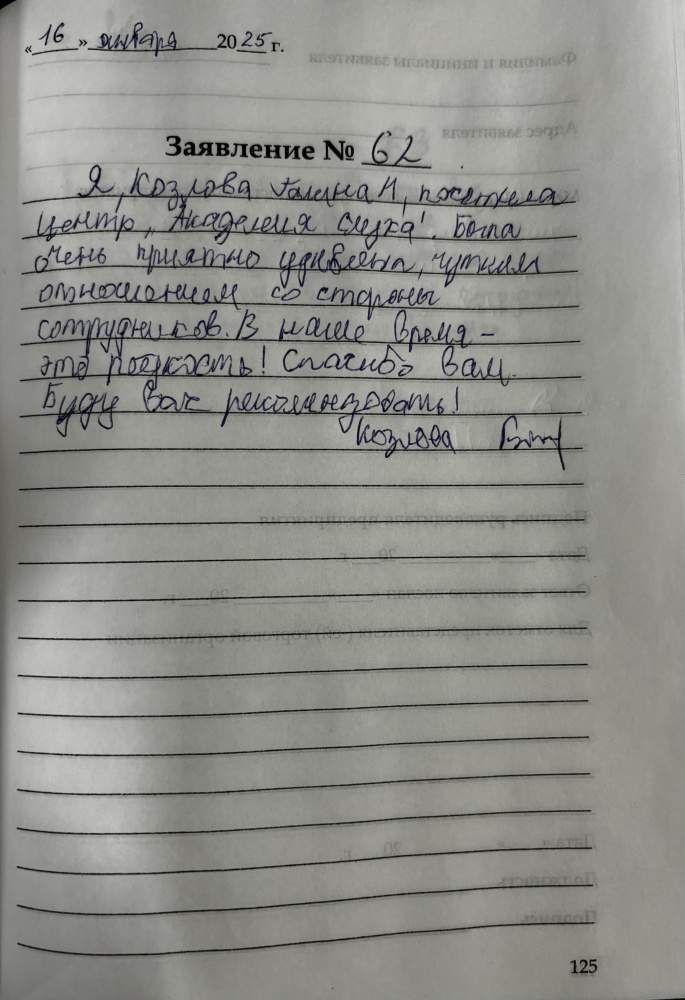 «16» января 2025 г.
Заявление № 62
Я, Козлова Галина Н, посетила
центр „Академия слуха". Была
очень приятно удивлена, чутким
отношением со стороны
сотрудников. В наше время –
это редкость! Спасибо вам.
Буду вас рекомендовать!
Козлова
125